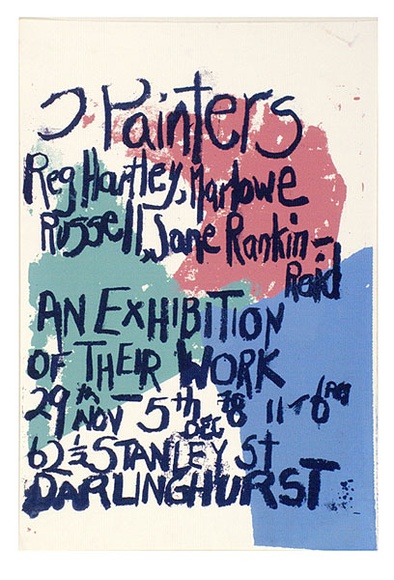 3 Painters
Reg Hartley, Marlowe
Russell, Jane Rankin-
Reid
AN EXHIBITION
OF THEIR WORK
29th NOV - 5th DEC 78 11-6PM
62½ STANLEY St
DARLINGHURST